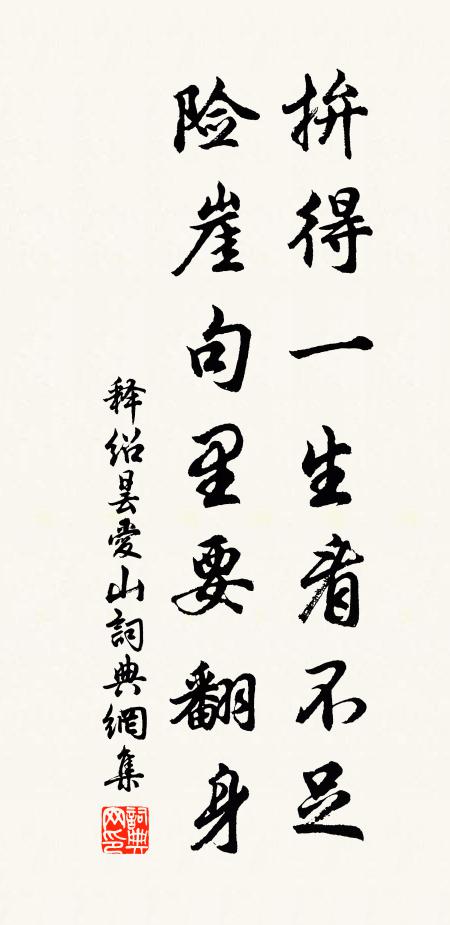 拚得一生看不足
险崖句里要翻身
释绍昙爱山詞典網集
詞典网印